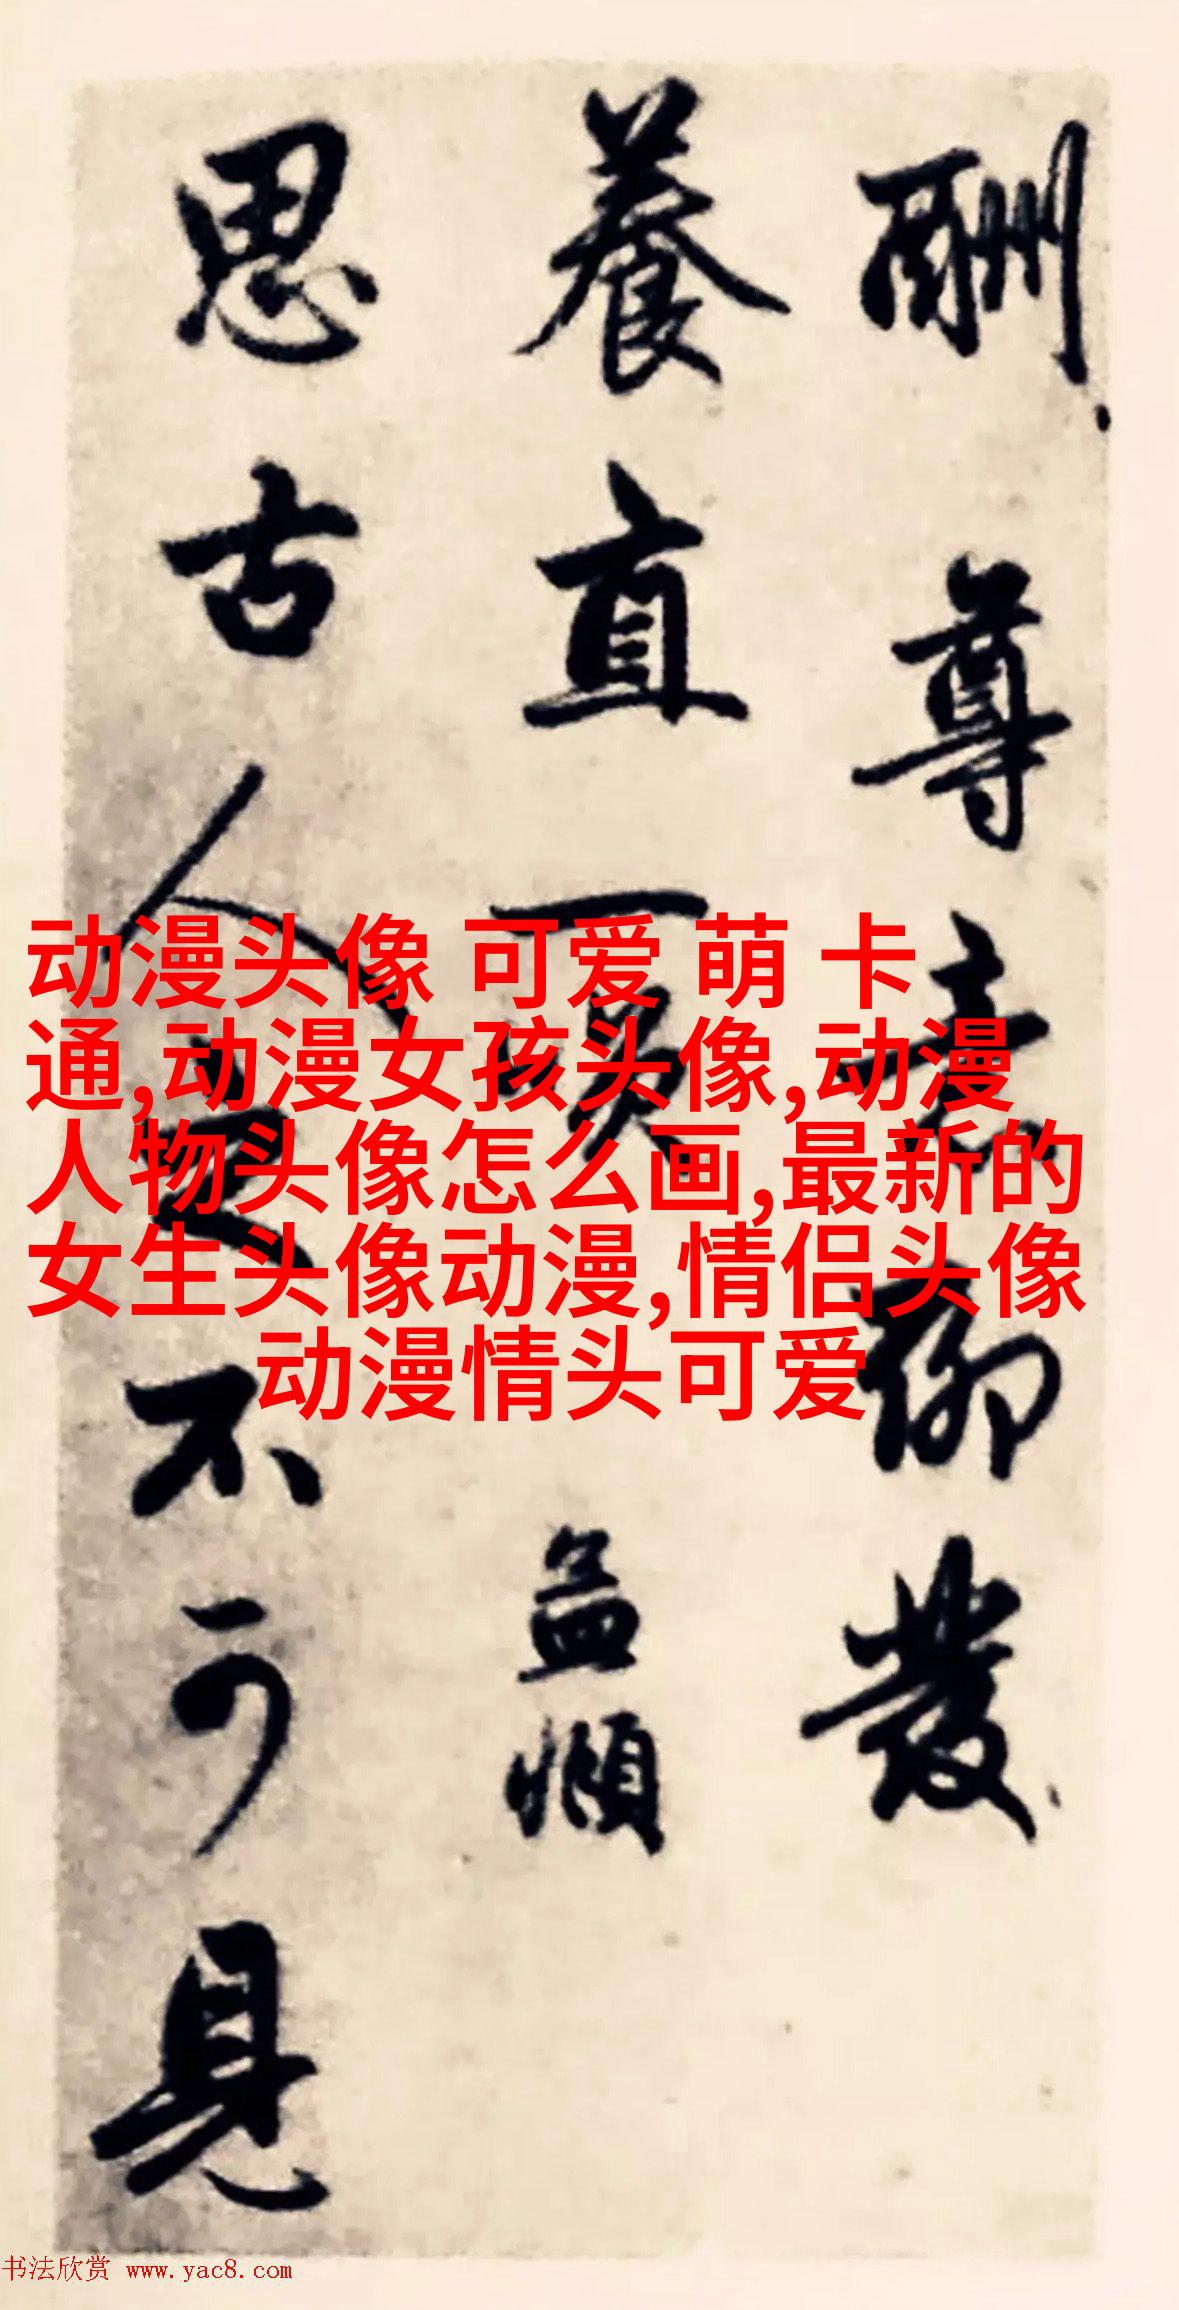 酬尊意聊發
養直一
孟頫
思古人不可見
动漫头像 可爱 萌 卡
通,动漫女孩头像,动漫
人物头像怎么画,最新的
女生头像动漫,情侣头像
动漫情头可爱
书法欣赏 www.yac8.com